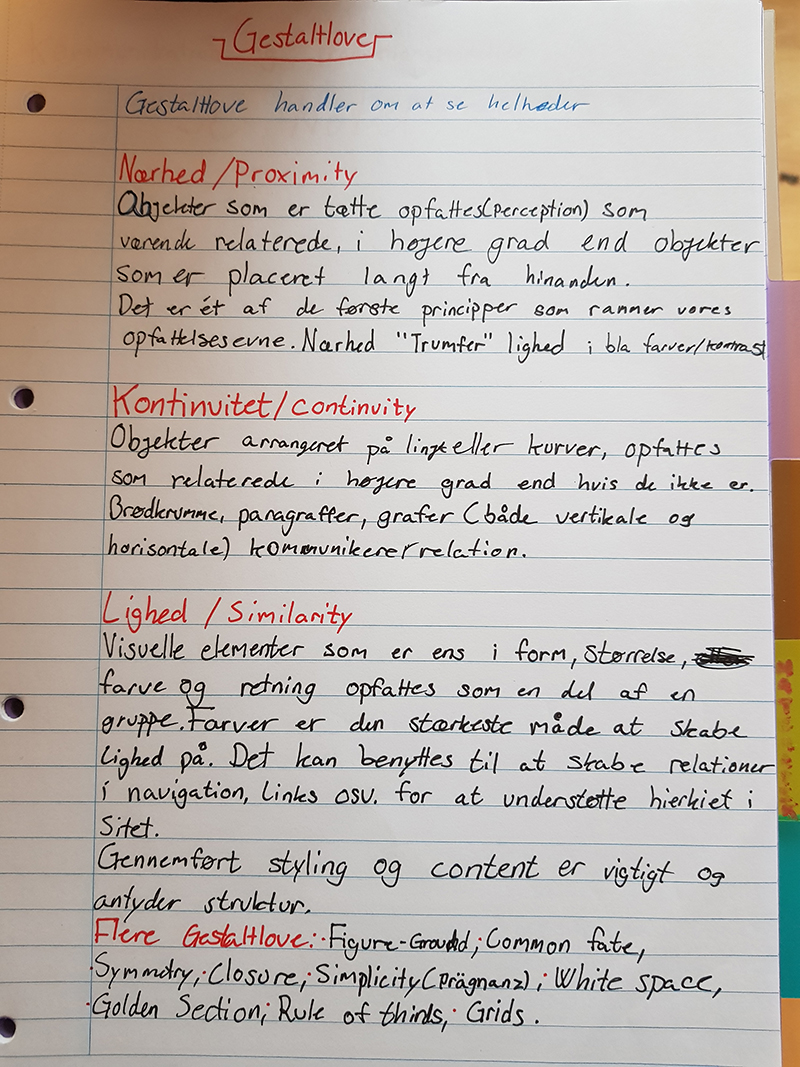 Gestaltlove
Gestaltlove handler om at se helheder
Nærhed / Proximity
Objekter som er tætte opfattes (perception) som
værende relaterede, i højere grad end objekter
som er placeret langt fra hinanden.
Det er ét af de første principper som rammer vores
opfattelsesevne. Nærhed "Trumfer" lighed i bla farver/kontrast
Kontinuitet / continuity
Objekter arrangeret på linje eller kurver, opfattes
som relaterede i højere grad end hvis de ikke er.
Brødkrumme, paragraffer, grafer (både vertikale og
horisontale) kommunikerer relation.
Lighed / Similarity
Visuelle elementer som er ens i form, størrelse,
farve og retning opfattes som en del af en
gruppe. Farver er den stærkeste måde at skabe
Lighed på. Det kan benyttes til at skabe relationer
i navigation, links osv. for at understøtte hierkiet i
Sitet.
Gennemført styling og content er vigtigt og
antyder struktur.
Flere Gestaltlove: · Figure-Ground; Common fate,
· Symmetry; · Closure; · Simplicity (Prägnanz); · White space,
· Golden Section; Rule of thirds, · Grids.